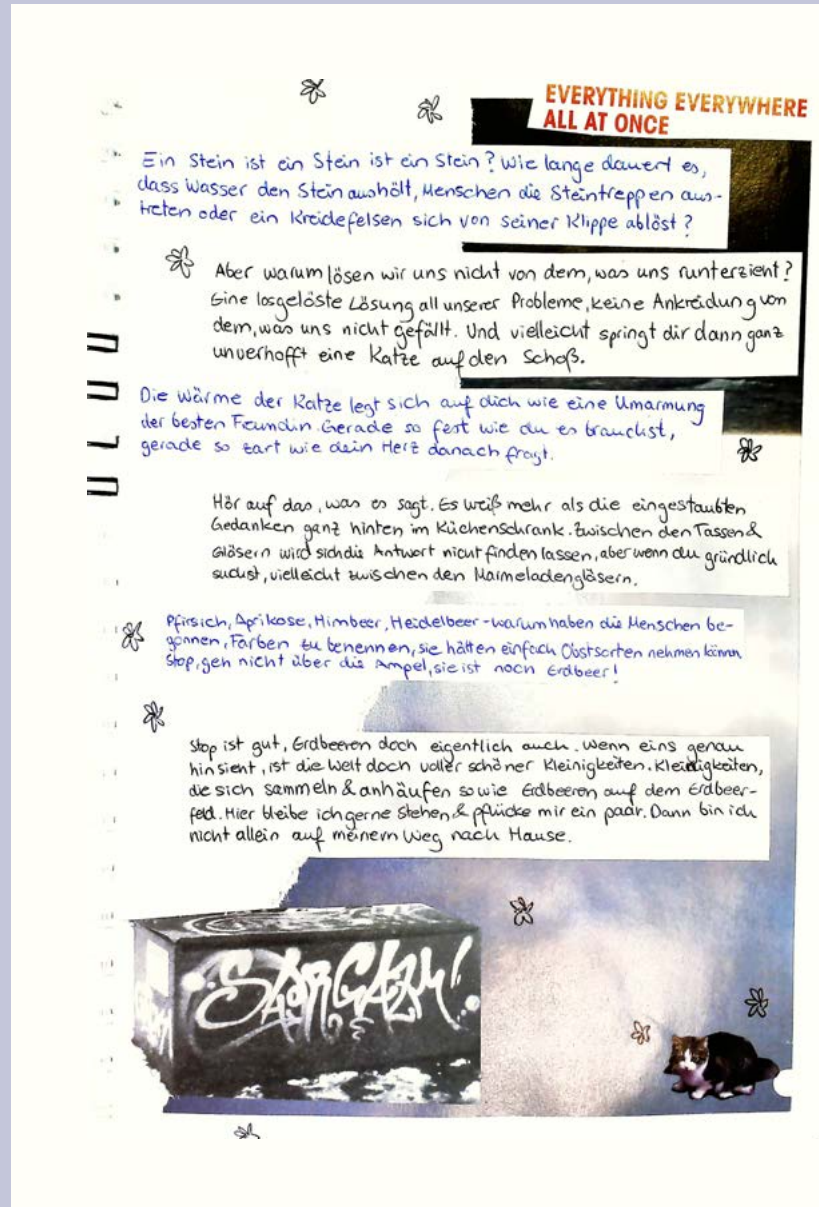 EVERYTHING EVERYWHERE
ALL AT ONCE
Ein Stein ist ein Stein ist ein Stein? Wie lange dauert es,
dass Wasser den Stein aushölt, Menschen die Steintreppen aus-
treten oder ein Kreidefelsen sich von seiner Klippe ablöst?
Aber warum lösen wir uns nicht von dem, was uns runterzieht?
Eine losgelöste Lösung all unserer Probleme, keine Ankreidung von
dem, was uns nicht gefällt. Und vielleicht springt dir dann ganz
unverhofft eine Katze auf den Schoß.
Die Wärme der Katze legt sich auf dich wie eine Umarmung
der besten Feundin. Gerade so fest wie du es brauchst,
gerade so zart wie dein Herz danach fragt.
Hör auf das, was es sagt. Es weiß mehr als die eingestaubten
Gedanken ganz hinten im Küchenschrank. Zwischen den Tassen &
Gläsern wird sich die Antwort nicht finden lassen, aber wenn du gründlich
suchst, vielleicht zwischen den Marmeladengläsern.
Pfirsich, Aprikose, Himbeer, Heidelbeer - warum haben die Menschen be-
gonnen, Farben zu benennen, sie hätten einfach Obstsorten nehmen können
Stop, geh nicht über die Ampel, sie ist noch Erdbeer!
Stop ist gut, Erdbeeren doch eigentlich auch. Wenn eins genau
hinsieht, ist die Welt doch voller schöner Kleinigkeiten. Kleinigkeiten,
die sich sammeln & anhäufen so wie Erdbeeren auf dem Erdbeer-
feld. Hier bleibe ich gerne stehen & pflücke mir ein paar. Dann bin ich
nicht allein auf meinem Weg nach Hause.